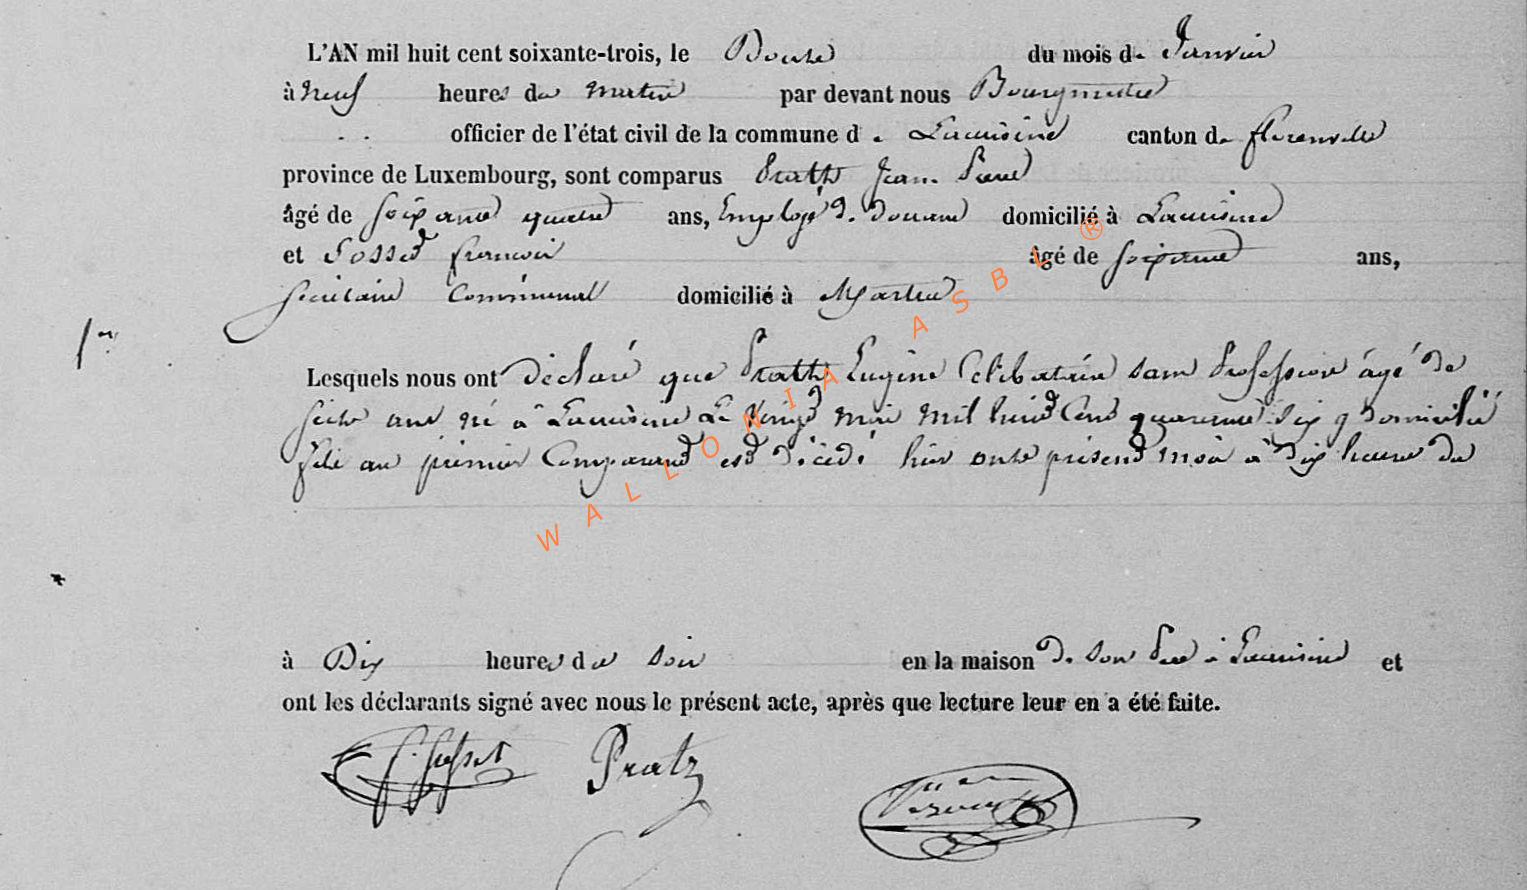 L'AN mil huit cent soixante-trois, le Douze du mois de Janvier
à neuf heures du matin par devant nous Bourgmestre
officier de l'état civil de la commune de Lacuisine canton de florenville
province de Luxembourg, sont comparus Prath Jean Pierre
âgé de soixante quatre ans, Employé d. Douane domicilié à Lacuisine
et Gosset francois âgé de soixante ans,
Secrétaire Communal domicilié à Martue
1er
Lesquels nous ont déclaré que Prath Eugène Célibataire sans Profession âgé de
seize ans né à Lacuisine Le Vingt mai mil huit Cent quarante six y domicilié
fils au premier Comparant est décédé hier onze présent mois à dix heures du
à Dix heures du soir en la maison de son Père à Lacuisine et
ont les déclarants signé avec nous le présent acte, après que lecture leur en a été faite.
Pratz
WALLONIA ASBL ®